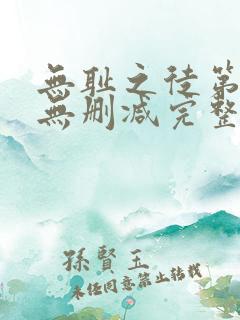 無耻之徒第
無删减完整
孫賢玉
未经同意禁止转载